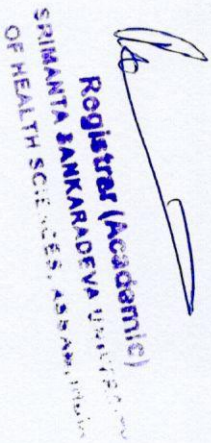 Registrar (Academic)
SRIMANTA SANKARADEVA UNIVERSITY
OF HEALTH SCIENCES, ASSAM,